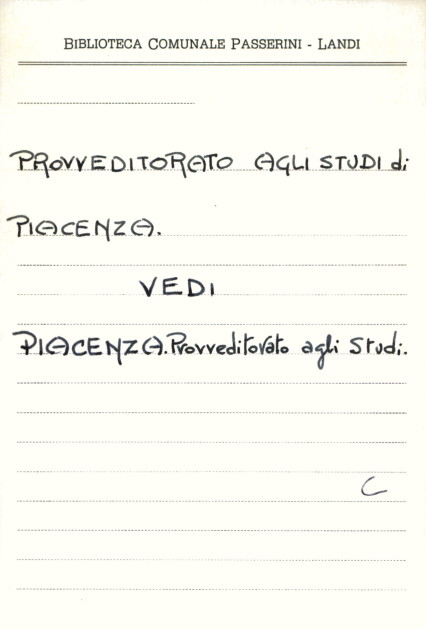 BIBLIOTECA COMUNALE PASSERINI - LANDI
PROVVEDITORATO AGLI STUDI di
PIACENZA.
VEDI
PIACENZA. Provveditorato agli Studi.
C